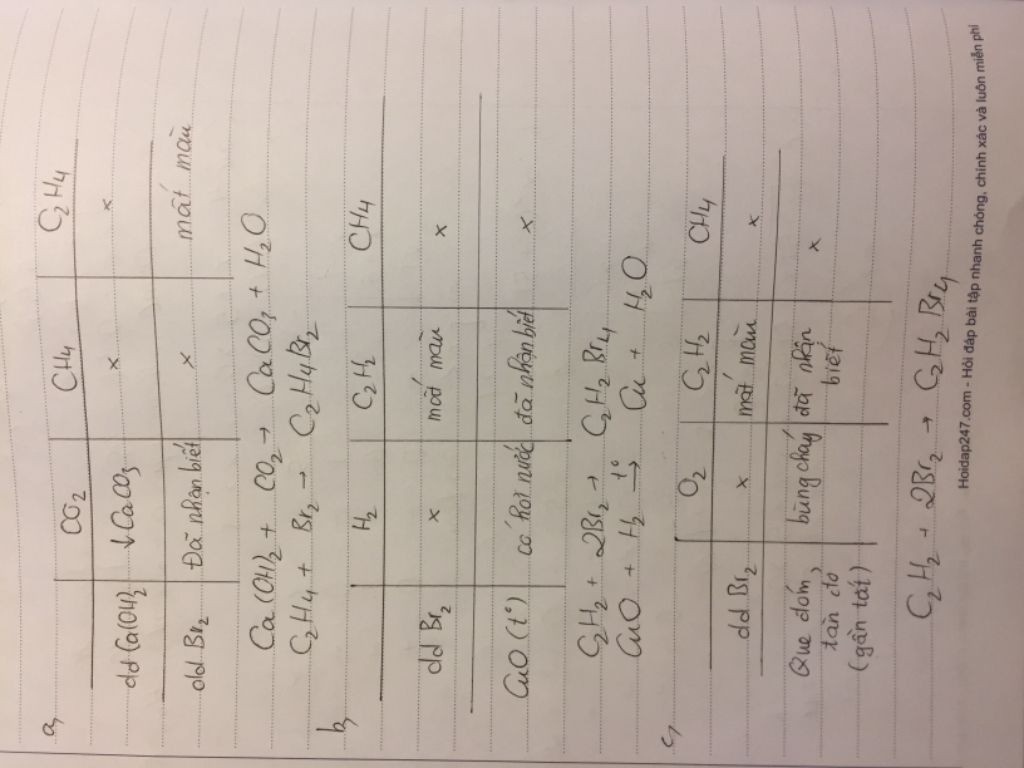 a,
CO2 CH4 C2H4
dd Ca(OH)2 ↓CaCO3 x x
dd Br2 Đã nhận biết x mất màu
Ca(OH)2 + CO2 → CaCO3 + H2O
C2H4 + Br2 → C2H4Br2
b,
H2 C2H2 CH4
dd Br2 x mất màu x
CuO (t°) có hơi nước đã nhận biết x
C2H2 + 2Br2 → C2H2Br4
CuO + H2 t° → Cu + H2O
c,
O2 C2H2 CH4
dd Br2 x mất màu x
Que đóm, bùng cháy đã nhận x
tàn đỏ biết
(gần tắt)
C2H2 + 2Br2 → C2H2Br4
Hoidap247.com - Hỏi đáp bài tập nhanh chóng, chính xác và luôn miễn phí